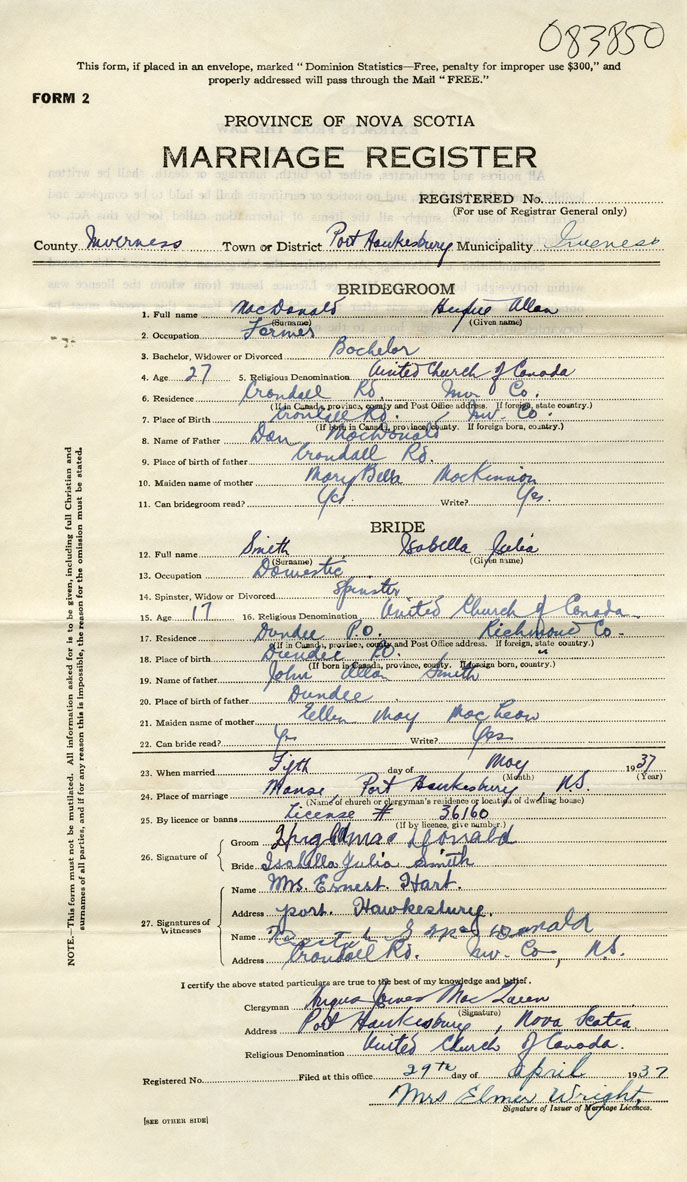 083850
This form, if placed in an envelope, marked "Dominion Statistics—Free, penalty for improper use $300," and
properly addressed will pass through the Mail "FREE."
FORM 2
PROVINCE OF NOVA SCOTIA
MARRIAGE REGISTER
REGISTERED No.
(For use of Registrar General only)
County Inverness Town or District Port Hawkesbury Municipality Inverness
BRIDEGROOM
1. Full name MacDonald Allan
(Surname) (Given name)
2. Occupation Farmer
3. Bachelor, Widower or Divorced Bachelor
4. Age 27 5. Religious Denomination United Church of Canada
6. Residence Crandall Rd. Inv. Co.
(If in Canada, province, county and Post Office address. If foreign, state country.)
7. Place of Birth Crandall Rd. Inv. Co.
(If born in Canada, province, county. If foreign born, country.)
8. Name of Father Dan MacDonald
9. Place of birth of father Crandall Rd.
10. Maiden name of mother Mary Bell MacKinnon
11. Can bridegroom read? Yes Write? Yes.
BRIDE
12. Full name Smith Isabella Julia
(Surname) (Given name)
13. Occupation Domestic
14. Spinster, Widow or Divorced Spinster
15. Age 17 16. Religious Denomination United Church of Canada
17. Residence Dundee P.O. Richmond Co.
(If in Canada, province, county and Post Office address. If foreign, state country.)
18. Place of birth Dundee
(If born in Canada, province, county. If foreign born, country.)
19. Name of father John Allan Smith
20. Place of birth of father Dundee
21. Maiden name of mother Ellen May MacLean
22. Can bride read? Yes Write? Yes
23. When married Fifth day of May 1937
(Month) (Year)
24. Place of marriage Manse, Port Hawkesbury, N.S.
(Name of church or clergyman's residence or location of dwelling house)
25. By licence or banns License # 36160
(If by licence, give number.)
26. Signature of
Groom Hugh MacDonald
Bride Isabella Julia Smith
27. Signatures of Witnesses
Name Mrs. Ernest Hart.
Address port. Hawkesbury.
Name McDonald
Address Crandall Rd. Inv. Co., N.S.
I certify the above stated particulars are true to the best of my knowledge and belief.
Clergyman Angus James MacLaren
(Signature)
Address Port Hawkesbury, Nova Scotia
Religious Denomination United Church of Canada.
Registered No. Filed at this office 29th day of April 1937
Mrs Elmer Wright,
Signature of Issuer of Marriage Licences.
[SEE OTHER SIDE]
NOTE.—This form must not be mutilated. All information asked for is to be given, including full Christian and
surnames of all parties, and if for any reason this is impossible, the reason for the omission must be stated.